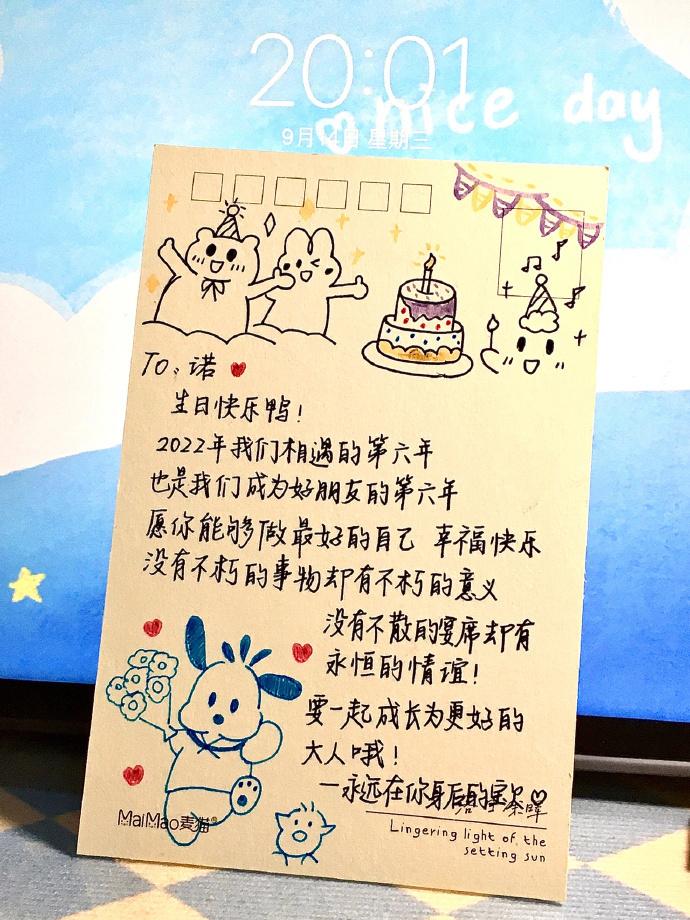 20:01
nice day
9月14日 星期三
To：诺
生日快乐鸭！
2022年我们相遇的第六年
也是我们成为好朋友的第六年
愿你能够做最好的自己 幸福快乐
没有不朽的事物却有不朽的意义
没有不散的宴席却有
永恒的情谊！
要一起成长为更好的
大人哦！
—永远在你身后的
余晖
Lingering light of the
setting sun
MaiMao麦猫®